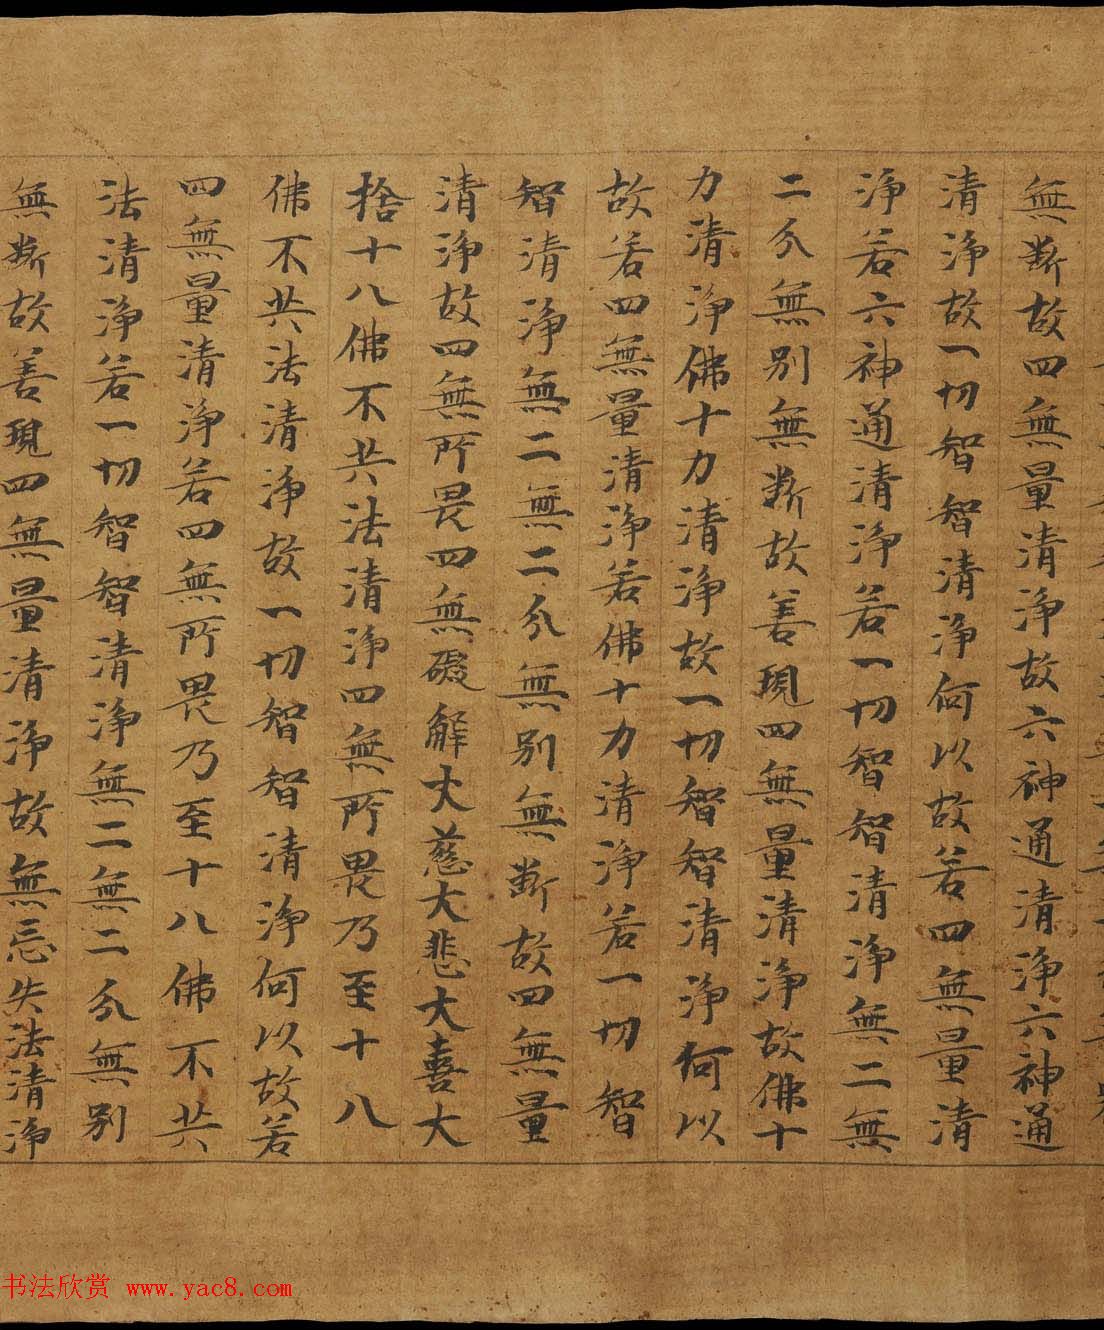 無斷故四無量清淨故六神通清淨六神通
清淨故一切智智清淨何以故若四無量清
淨若六神通清淨若一切智智清淨無二無
二分無別無斷故善現四無量清淨故佛十
力清淨佛十力清淨故一切智智清淨何以
故若四無量清淨若佛十力清淨若一切智
智清淨無二無二分無別無斷故四無量
清淨故四無所畏四無礙解大慈大悲大喜大
捨十八佛不共法清淨四無所畏乃至十八
佛不共法清淨故一切智智清淨何以故若
四無量清淨若四無所畏乃至十八佛不共
法清淨若一切智智清淨無二無二分無別
無斷故善現四無量清淨故無忘失法清淨
书法欣赏 www.yac8.com